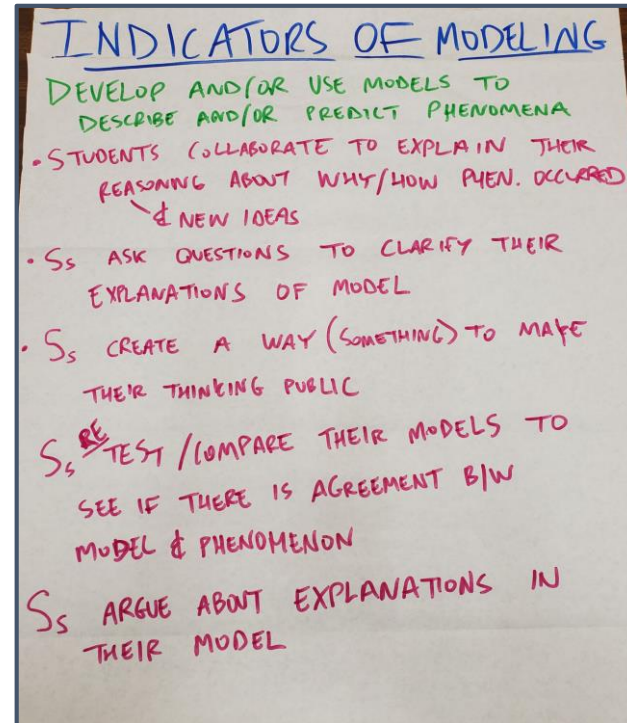 INDICATORS OF MODELING
DEVELOP AND/OR USE MODELS TO
DESCRIBE AND/OR PREDICT PHENOMENA
• STUDENTS COLLABORATE TO EXPLAIN THEIR
REASONING ABOUT WHY/HOW PHEN. OCCURRED
& NEW IDEAS
• Ss ASK QUESTIONS TO CLARIFY THEIR
EXPLANATIONS OF MODEL
• Ss CREATE A WAY (SOMETHING) TO MAKE
THEIR THINKING PUBLIC
Ss RE TEST / COMPARE THEIR MODELS TO
SEE IF THERE IS AGREEMENT B/W
MODEL & PHENOMENON
Ss ARGUE ABOUT EXPLANATIONS IN
THEIR MODEL